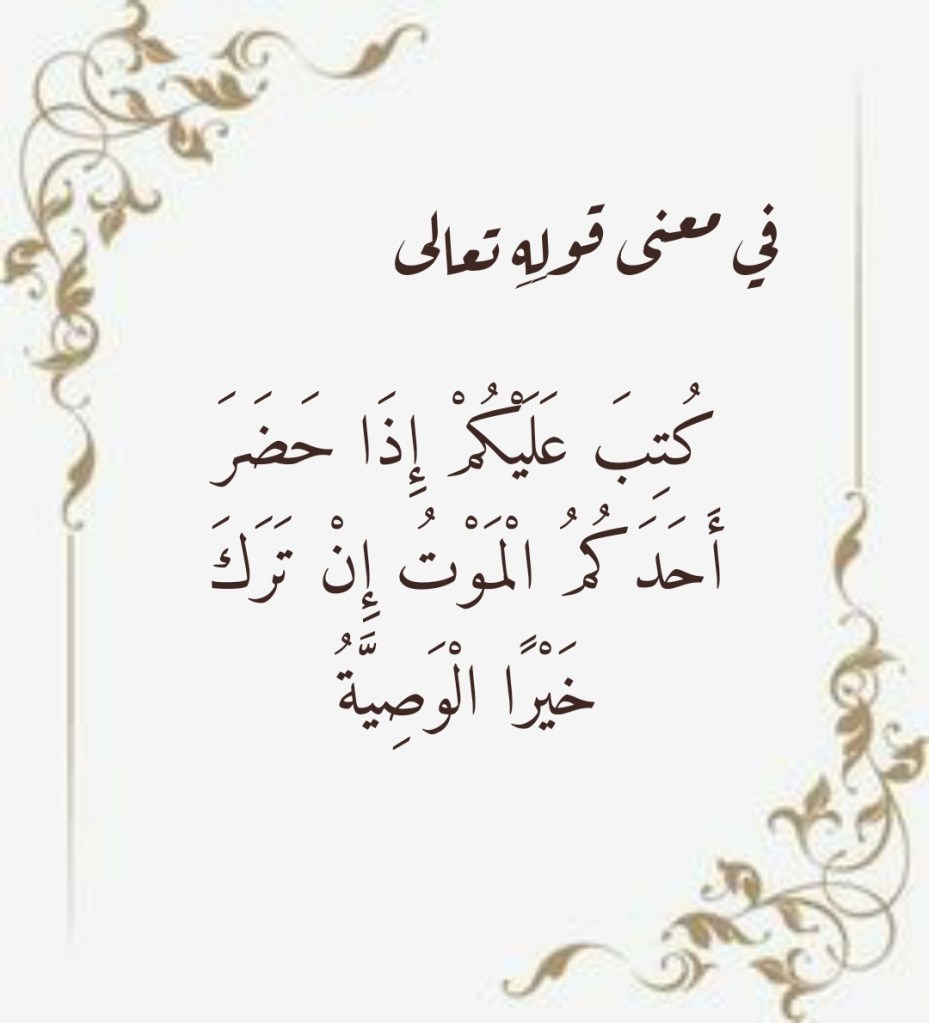 في معنى قولِهِ تعالى
كُتِبَ عَلَيْكُمْ إِذَا حَضَرَ
أَحَدَكُمُ الْمَوْتُ إِنْ تَرَكَ
خَيْرًا الْوَصِيَّةُ